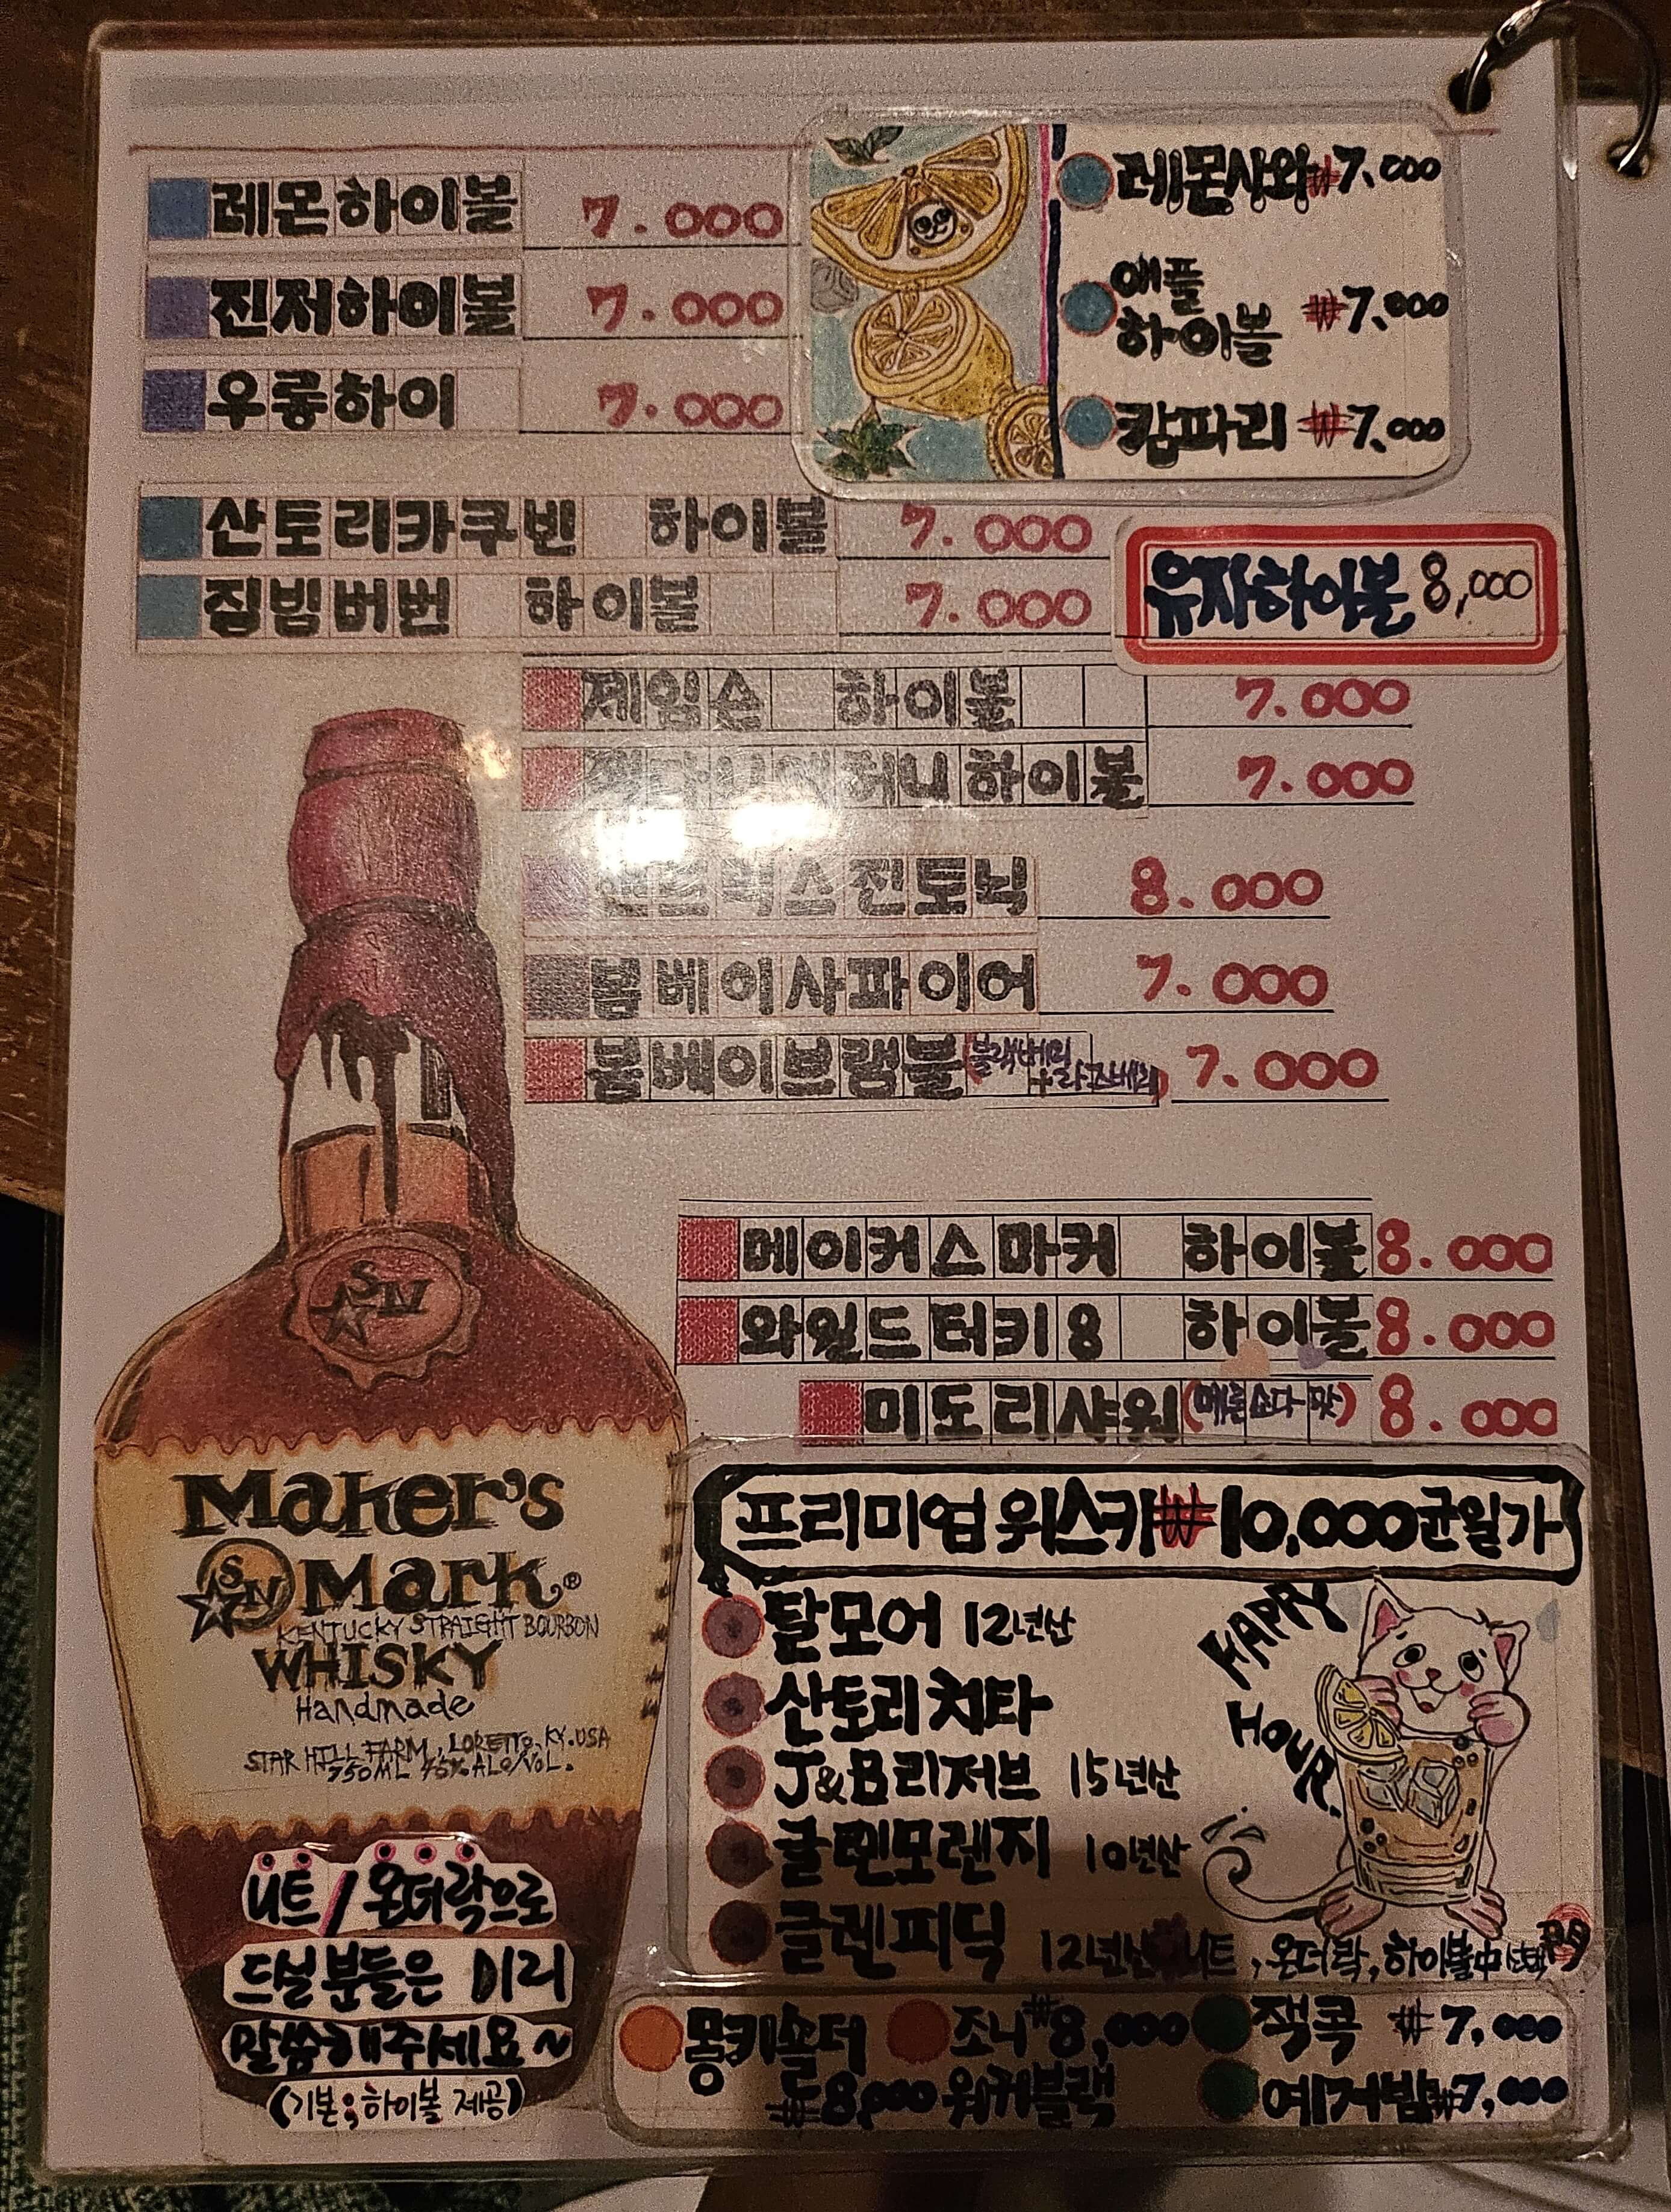 레몬하이볼 7.000
진저하이볼 7.000
우롱하이 7.000
레몬사와 ₩7.000
애플
하이볼 ₩7.000
캄파리 ₩7.000
산토리카쿠빈 하이볼 7.000
짐빔버번 하이볼 7.000
유자하이볼 8,000
제임슨 하이볼 7.000
허니하이볼 7.000
진토닉 8.000
봄베이사파이어 7.000
봄베이브램블(블랙베리
+라즈베리) 7.000
메이커스마커 하이볼 8.000
와일드터키8 하이볼 8.000
미도리샤워(메론소다 맛) 8.000
Maker's
SN Mark®
KENTUCKY STRAIGHT BOURBON
WHISKY
Handmade
STAR HILL FARM, LORETTO, KY. USA
750ML 45% ALC/VOL.
니트/온더락으로
드실분들은 미리
말씀해주세요~
(기본;하이볼 제공)
프리미엄 위스키 ₩10,000균일가
탈모어 12년산
산토리 치타
J&B리저브 15년산
글렌모렌지 10년산
글렌피딕 12년산
니트, 온더락, 하이볼中 선택
HAPPY
HOUR.
몽키숄더
₩8,000
조니 ₩8,000
워커블랙
잭콕 ₩7,000
예거밤 ₩7,000